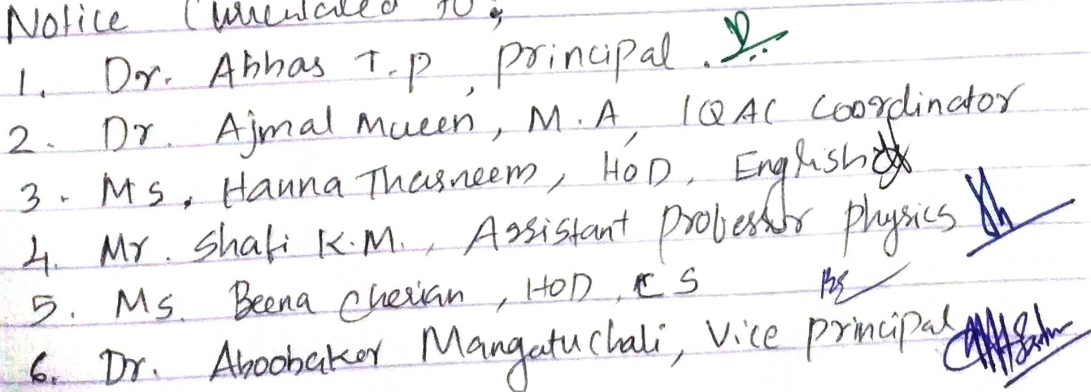 Notice Circulated to;
1. Dr. Abbas T.P, principal.
2. Dr. Ajmal Mueen, M.A, IQAC Coordinator
3. MS. Hanna Thasneem, HOD, English
4. Mr. Shafi K.M., Assistant Professor physics
5. Ms. Beena Cherian, HOD, CS
6. Dr. Aboobaker Mangatuchali, Vice principal